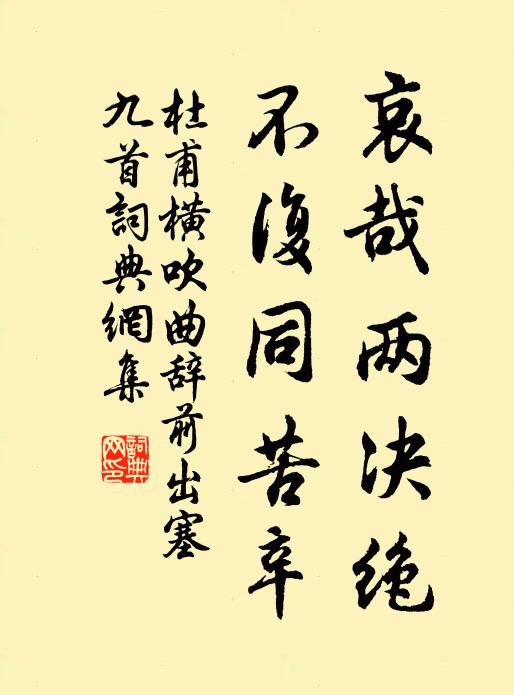 哀哉两决绝
不復同苦辛
杜甫横吹曲辞前出塞
九首詞典網集
詞典
网印